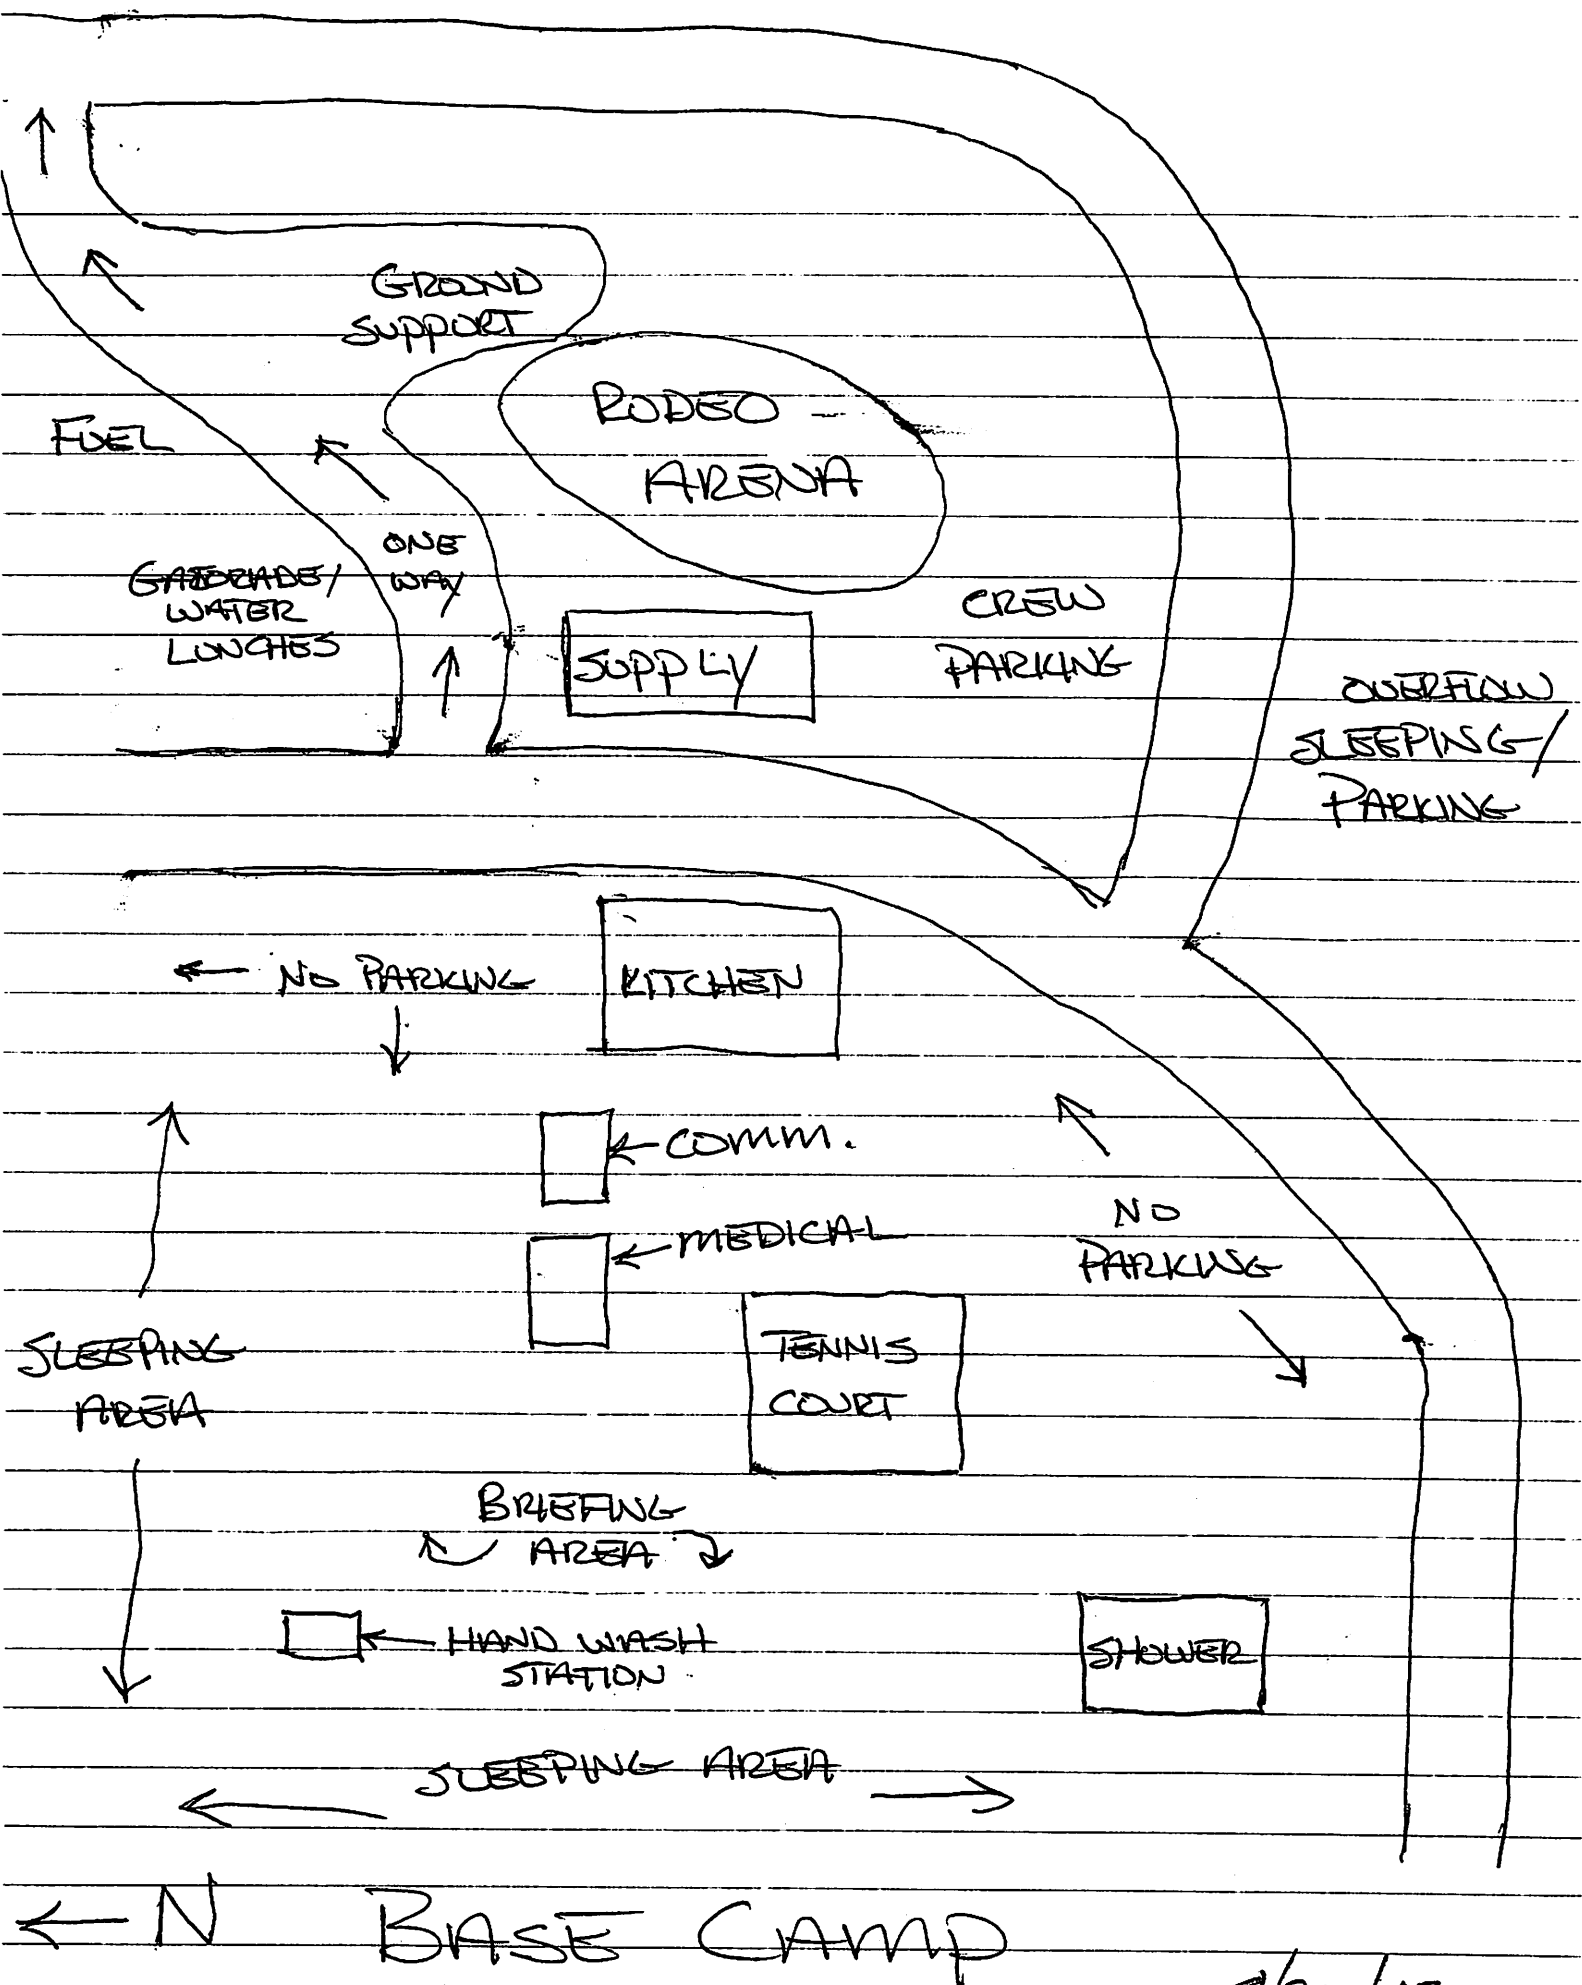 GROUND
SUPPORT
RODEO
ARENA
FUEL
ONE
WAY
GATORADE/
WATER
LUNCHES
SUPPLY
CREW
PARKING
OVERFLOW
SLEEPING/
PARKING
← NO PARKING
KITCHEN
← COMM.
← MEDICAL
NO
PARKING
SLEEPING
AREA
TENNIS
COURT
BRIEFING
AREA
← HAND WASH
STATION
SHOWER
SLEEPING AREA
← N BASE CAMP